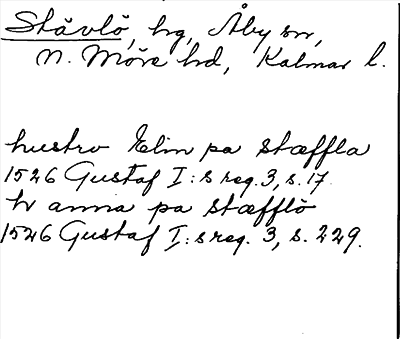 Stävlö, hg, Åby sn,
N. Möre hd, Kalmar l.
hustro Elin pa Stæffla
1526 Gustaf I:s reg. 3, s. 17.
h anna pa Stæfflö
1526 Gustaf I:s reg. 3, s. 229.